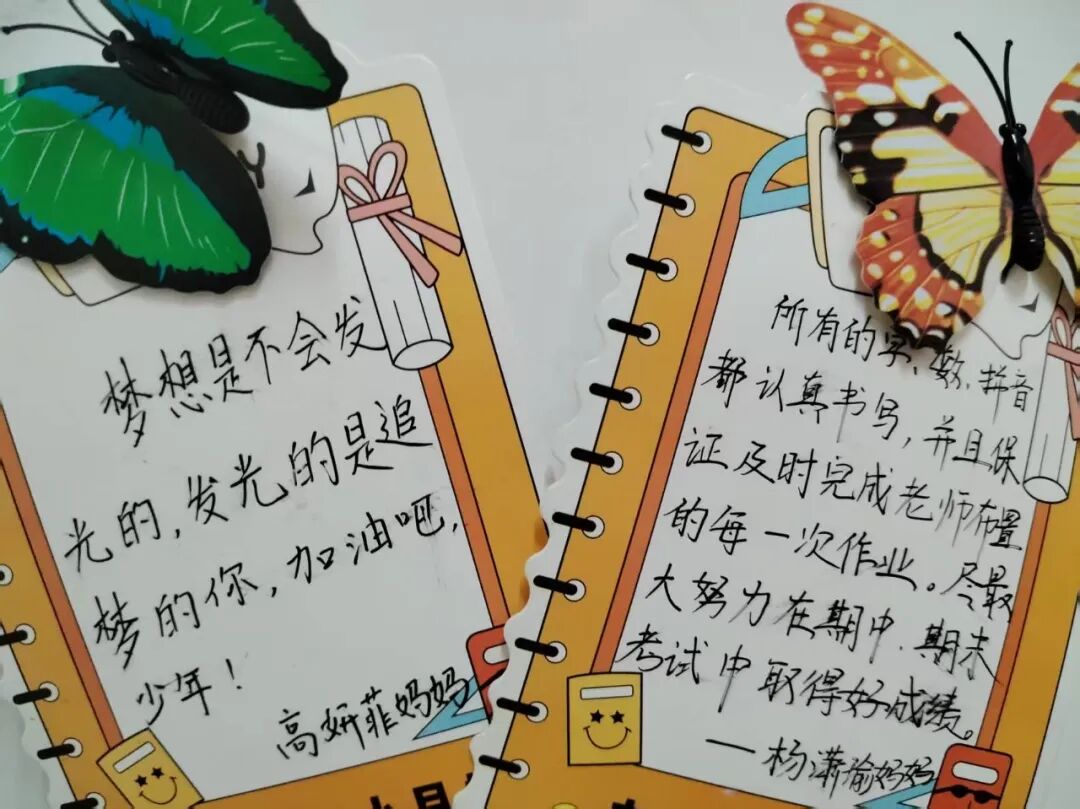 梦想是不会发
光的,发光的是追
梦的你,加油吧,
少年!
高妍菲妈妈
所有的字、数、拼音
都认真书写,并且保
证及时完成老师布置
的每一次作业。尽最
大努力在期中、期末
考试中取得好成绩。
—杨潇瑜妈妈